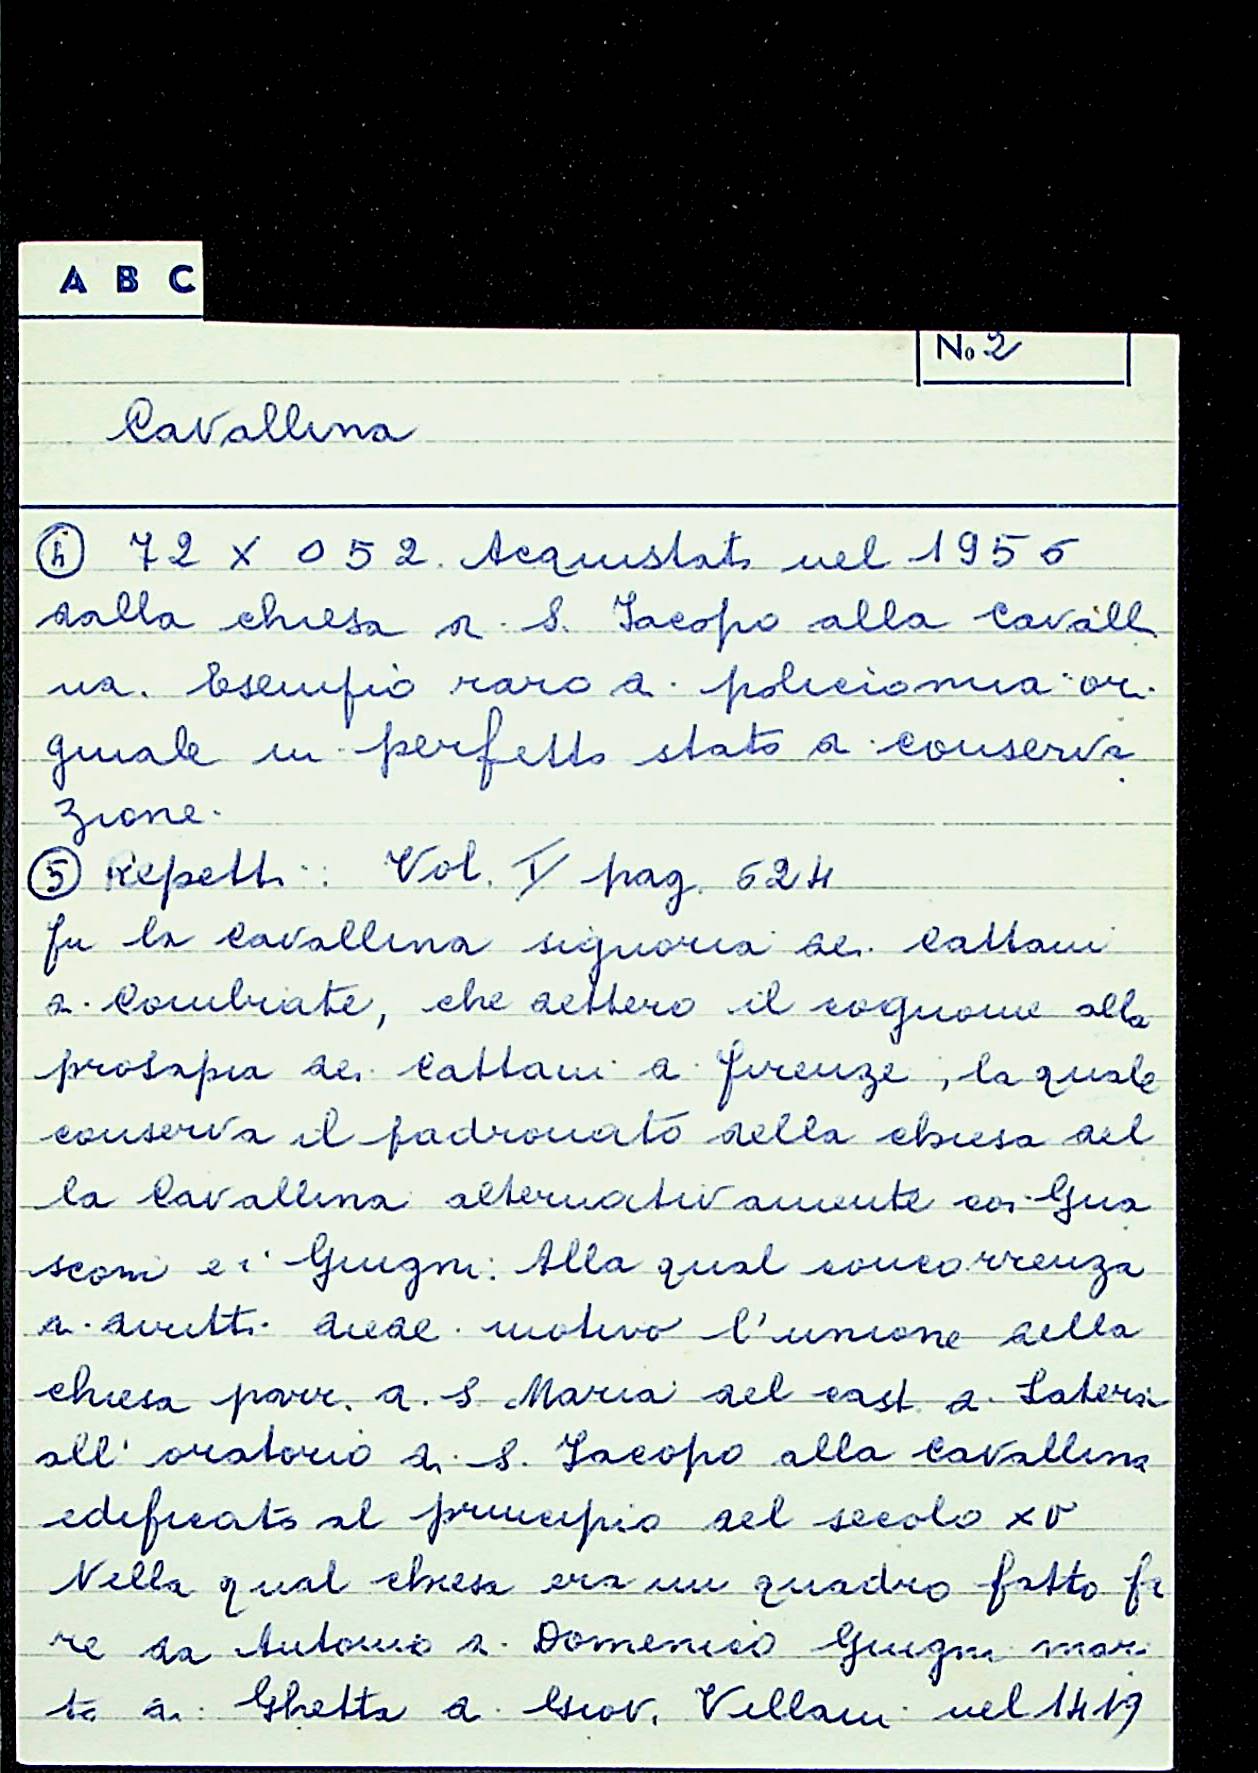 A B C
No 2
Cavallina
④ 72 x 052. Acquistato nel 1956
dalla chiesa di S. Jacopo alla Cavalli
na. Esempio raro di policromia ori
ginale in perfetto stato di conserva
zione.
⑤ Repetti: Vol. V pag. 624
fu la Cavallina signoria dei Cattani
di Combiate, che dettero il cognome alla
prosapia dei Cattani di Firenze, la quale
conserva il padronato della chiesa del
la Cavallina alternativamente coi Gua
sconi e i Giugni. Alla qual concorrenza
di diritti diede motivo l'unione della
chiesa parr. di S. Maria del cast. di Latera
all' oratorio di S. Jacopo alla Cavallina
edificato al principio del secolo XV
Nella qual chiesa era un quadro fatto fa
re da Antonio di Domenico Giugni mari
to di Ghetta di Giov. Villani nel 1419